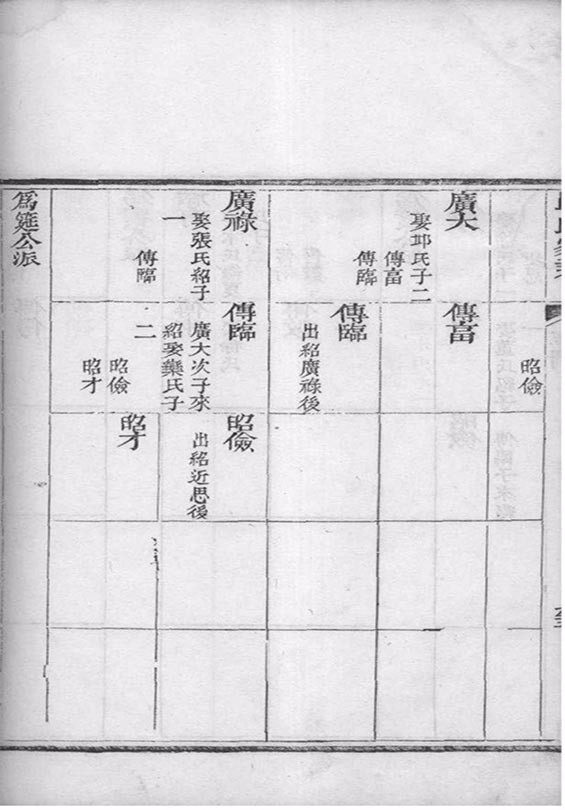 昭儉
廣大
娶邶氏子二
傳富
傳臨
傳富
傳臨
出紹廣祿後
廣祿
娶張氏紹子
一
傳臨
傳臨
廣大次子來
紹娶藥氏子
二
昭儉
昭才
昭儉
出紹近思後
昭才
爲筵公派